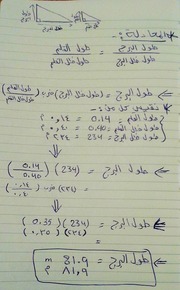 طول البرج = طول القلم
طول ظل البرج طول ظل القلم
طول البرج = (طول ظل البرج) ضرب (طول القلم / طول ظل القلم)
طول القلم = 0.14 = ٠,١٤
طول ظل القلم = 0.40 = ٠,٤٠
طول ظل البرج = 234 = ٢٣٤
طول البرج = (234) (0.14 / 0.40)
(٢٣٤) ضرب (٠,١٤ / ٠,٤٠)
طول البرج = (234) (0.35)
(٢٣٤) (٠,٣٥)
=
طول البرج = 81.9 m
٨١,٩ م